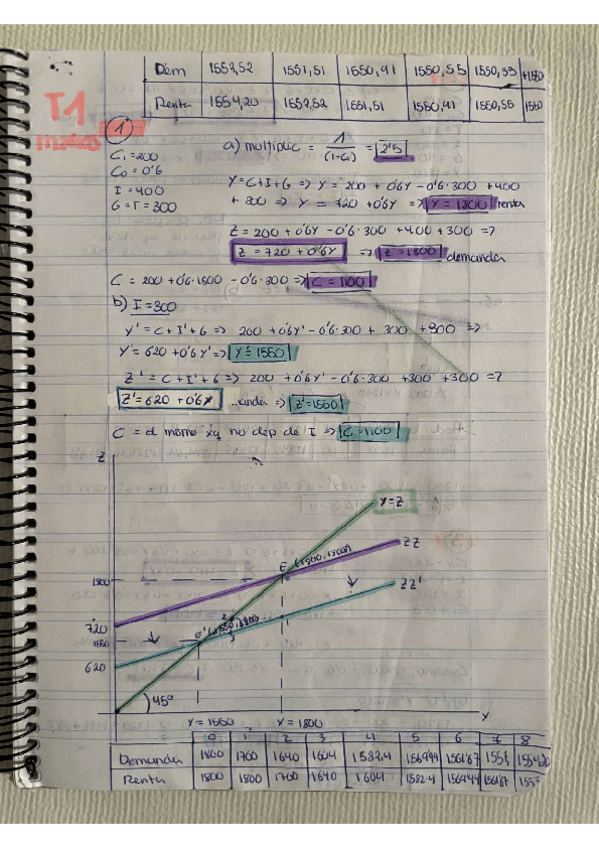 Dem 1553,52 1551,51 1550,91 1550,55 1550,33 →1550
Renta 1554,20 1552,52 1551,51 1550,91 1550,55 1550
T1
1
a) multiplic = 1/(1-C1) = 2'5
C1 = 200
C0 = 0'6
I = 400
G = T = 300
Y = C + I + G => Y = 200 + 0'6Y - 0'6·300 + 400
+ 300 => Y = 720 + 0'6Y => Y = 1800 renta
Z = 200 + 0'6Y - 0'6·300 + 400 + 300 =>
Z = 720 + 0'6Y => Z = 1800 demanda
C = 200 + 0'6·1800 - 0'6·300 => C = 1100
b) I = 300
Y' = C + I' + G => 200 + 0'6Y' - 0'6·300 + 300 + 300 =>
Y' = 620 + 0'6Y' => Y' = 1550
Z' = C + I' + G => 200 + 0'6Y' - 0'6·300 + 300 + 300 =>
Z' = 620 + 0'6Y => Z' = 1550
C = no dep de I => C = 1100
Z
Y = Z
ZZ
E (1800, 1800)
1800
ZZ'
720
1550
E'
620
45º
Y
Y = 1550 Y = 1800
0 1 2 3 4 5 6 7 8
Demanda 1800 1700 1640 1604 1582,4 1569'44 1561'67 1554'20
Renta 1800 1800 1700 1640 1604 1582'4 1569'44 1561'67